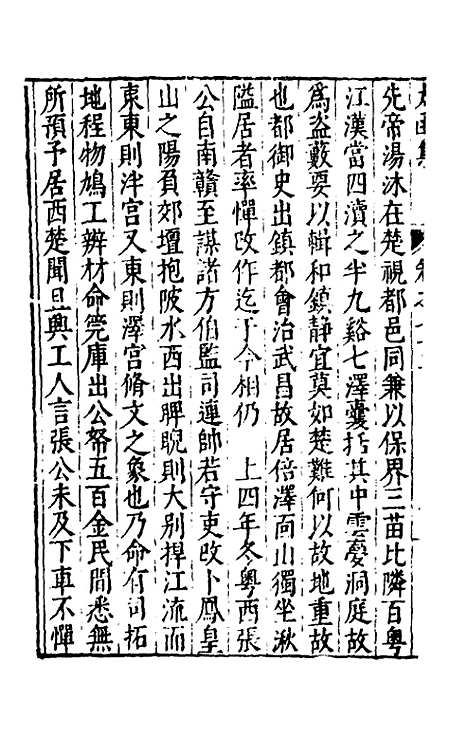 先帝湯沐在楚視都邑同兼以保界三苗比隣百粤
江漢當四瀆之半九谿七澤囊括其中雲夢洞庭故
爲盗藪要以輯和鎮靜宜莫如楚難何以故地重故
也都御史出鎮都會治武昌故居倍澤面山獨坐湫
隘居者率憚改作迄于今相仍　上四年冬粤西張
公自南贛至謀諸方伯監司連帥若守吏改卜鳳皇
山之陽負郊壇抱陂水西出睥睨則大别捍江流而
東東則泮宫又東則澤宫脩文之象也乃命有司拓
地程物鳩工辨材命筦庫出公帑五百金民間悉無
所預予居西楚聞旦興工人言張公未及下車不憚